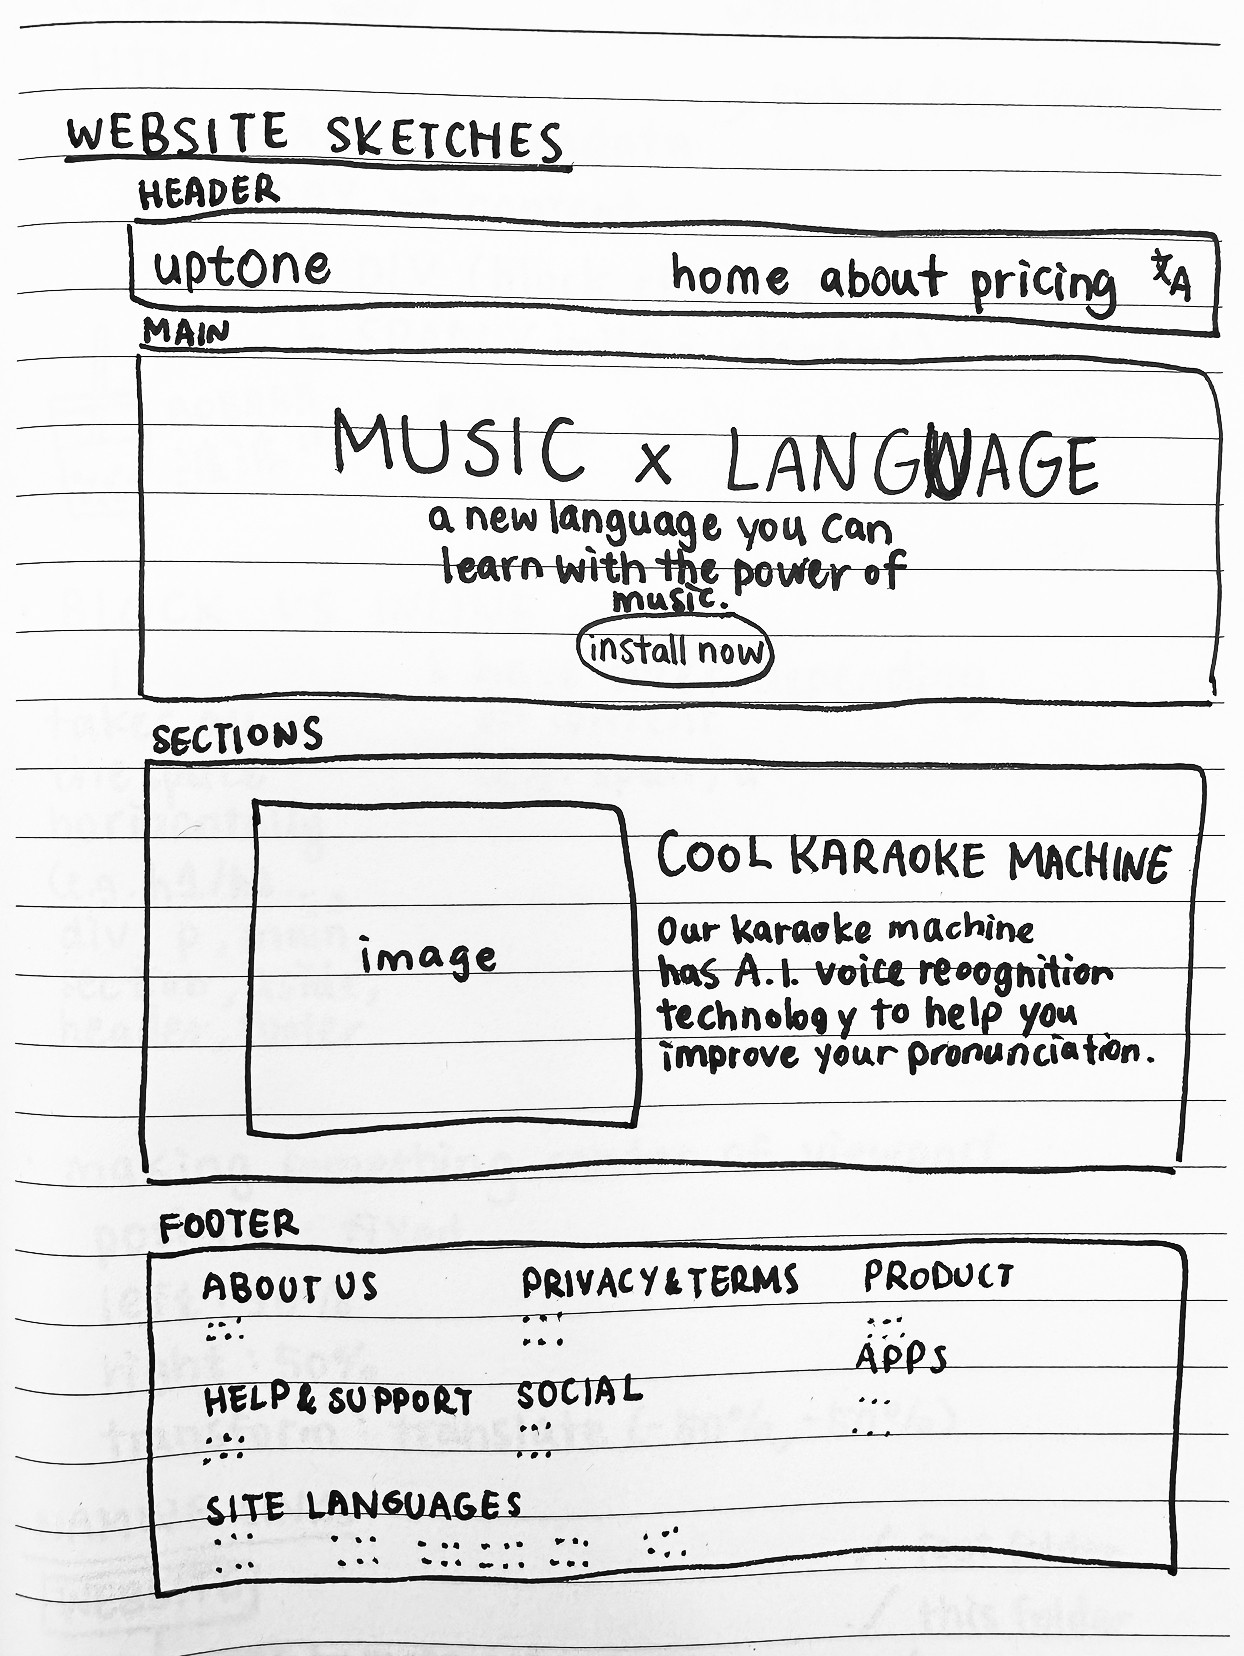 WEBSITE SKETCHES
HEADER
uptone home about pricing 文A
MAIN
MUSIC x LANGUAGE
a new language you can
learn with the power of
music.
install now
SECTIONS
image
COOL KARAOKE MACHINE
Our karaoke machine
has A.I. voice recognition
technology to help you
improve your pronunciation.
FOOTER
ABOUT US PRIVACY & TERMS PRODUCT
APPS
HELP & SUPPORT SOCIAL
SITE LANGUAGES